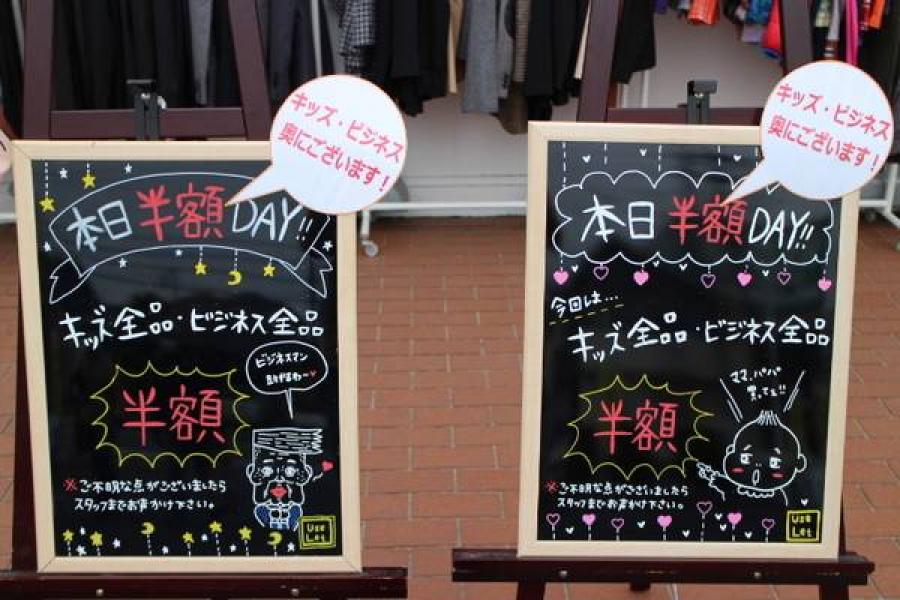 キッズ・ビジネス
奥にございます!
本日半額DAY!!
キッズ全品・ビジネス全品
ビジネスマン
半額
※ご不明な点がございましたら
スタッフまでお声かけ下さい。
Use
Let
キッズ・ビジネス
奥にございます!
本日半額DAY!!
今回は…
キッズ全品・ビジネス全品
ママ、パパ
買ってぇ!!
半額
※ご不明な点がございましたら
スタッフまでお声かけ下さい。
Use
Let